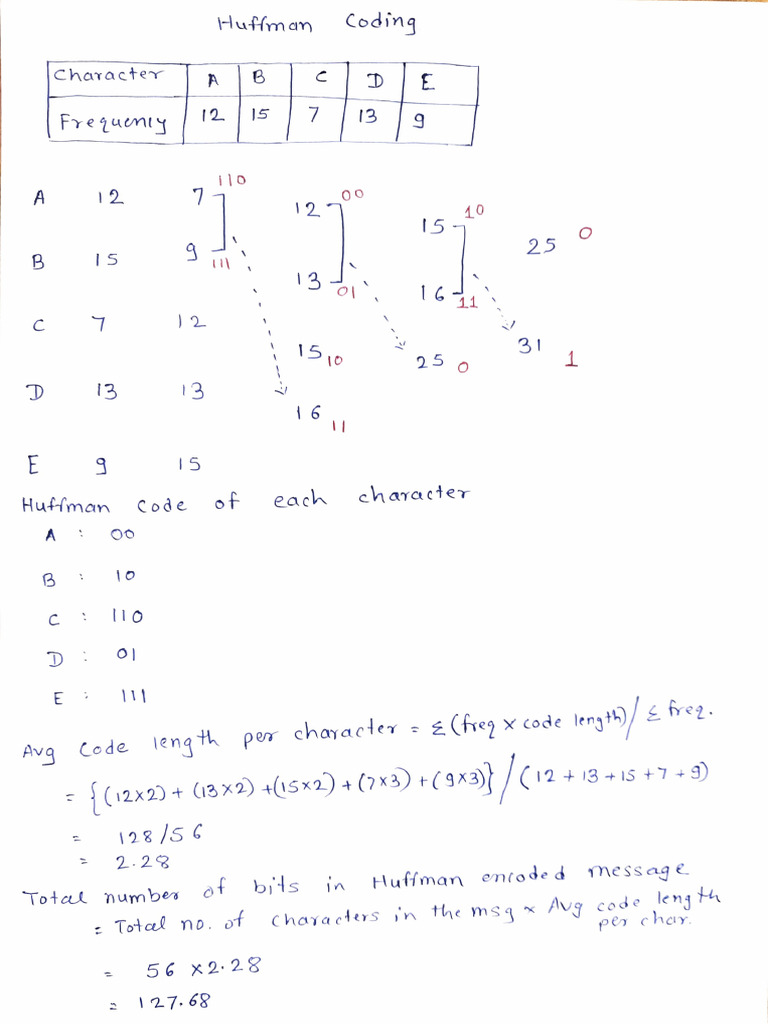 Huffman Coding
Character A B C D E
Frequency 12 15 7 13 9
110 00 10
A 12 7 12 15 25 0
B 15 9 111 13 01 16 11
C 7 12 15 10 25 0 31 1
D 13 13 16 11
E 9 15
Huffman Code of each character
A : 00
B : 10
C : 110
D : 01
E : 111
Avg Code length per character = Σ(freq × code length)/Σ freq.
= {(12×2) + (13×2) +(15×2) + (7×3) +(9×3)}/(12 + 13 + 15 + 7 + 9)
= 128/56
= 2.28
Total number of bits in Huffman encoded message
= Total no. of characters in the msg × Avg code length per char.
= 56 × 2.28
= 127.68